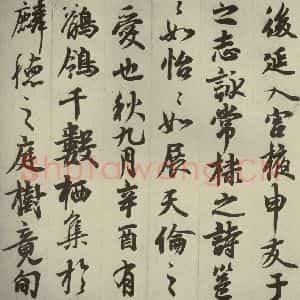 後延入宮掖申友于
之志詠常棣之詩邕
〻如怡〻如展天倫之
愛也秋九月辛酉有
鶺鴒千數栖集於
麟德之庭樹竟旬